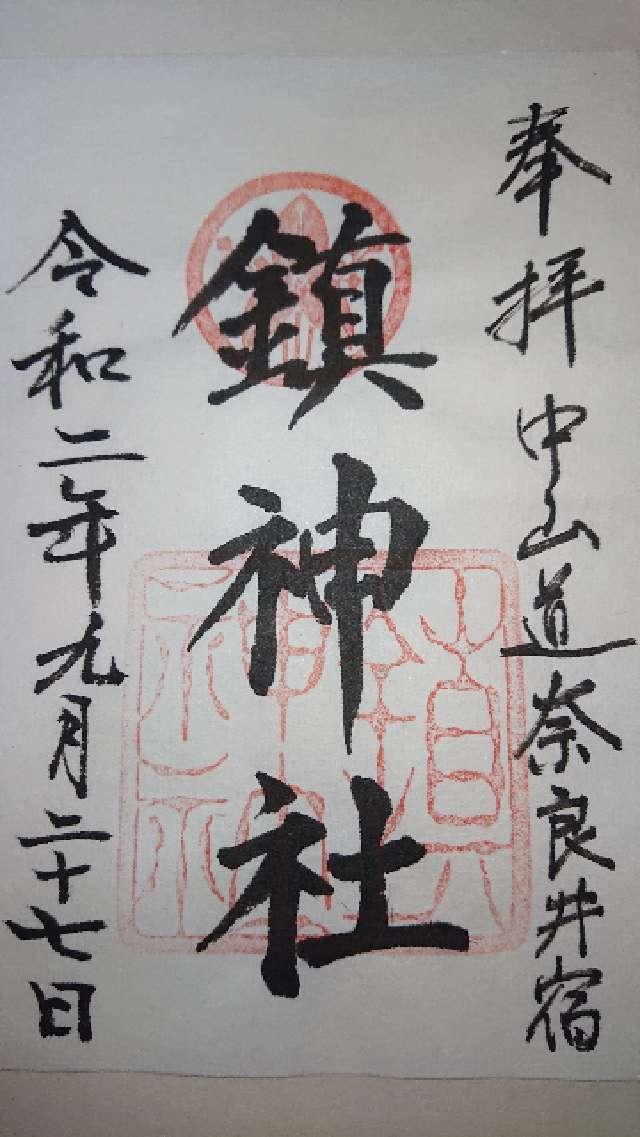 奉拝 中山道奈良井宿
鎮神社
令和二年九月二十七日